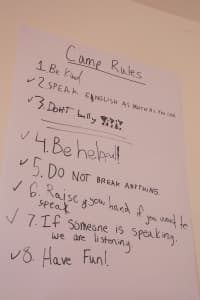 Camp Rules
1. Be Kind
✓2. SPEAK ENGLISH AS MUCH AS YOU CAN
✓3. DON'T bully
✓4. Be helpful!
✓5. DO NOT BREAK ANYTHING.
✓6. Raise your hand if you want to
speak
✓7. If someone is speaking,
we are listening.
✓8. Have Fun!